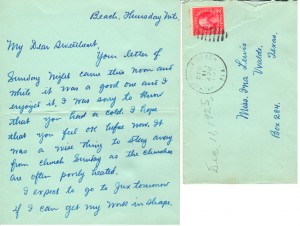 Beach, Thursday Nit.
My Dear Sweetheart,
Your letter of
Sunday Night came this noon and
while it was a good one and I
enjoyed it, I was sorry to know
that you had a cold. I hope
that you feel OK before now. It
was a wise thing to stay away
from church Sunday as the churches
are often poorly heated.
I expect to go to tomorrow
if I can get my work in shape.
Miss Ina Lewis
Texas.
Box 224.
Dec 11, 1925